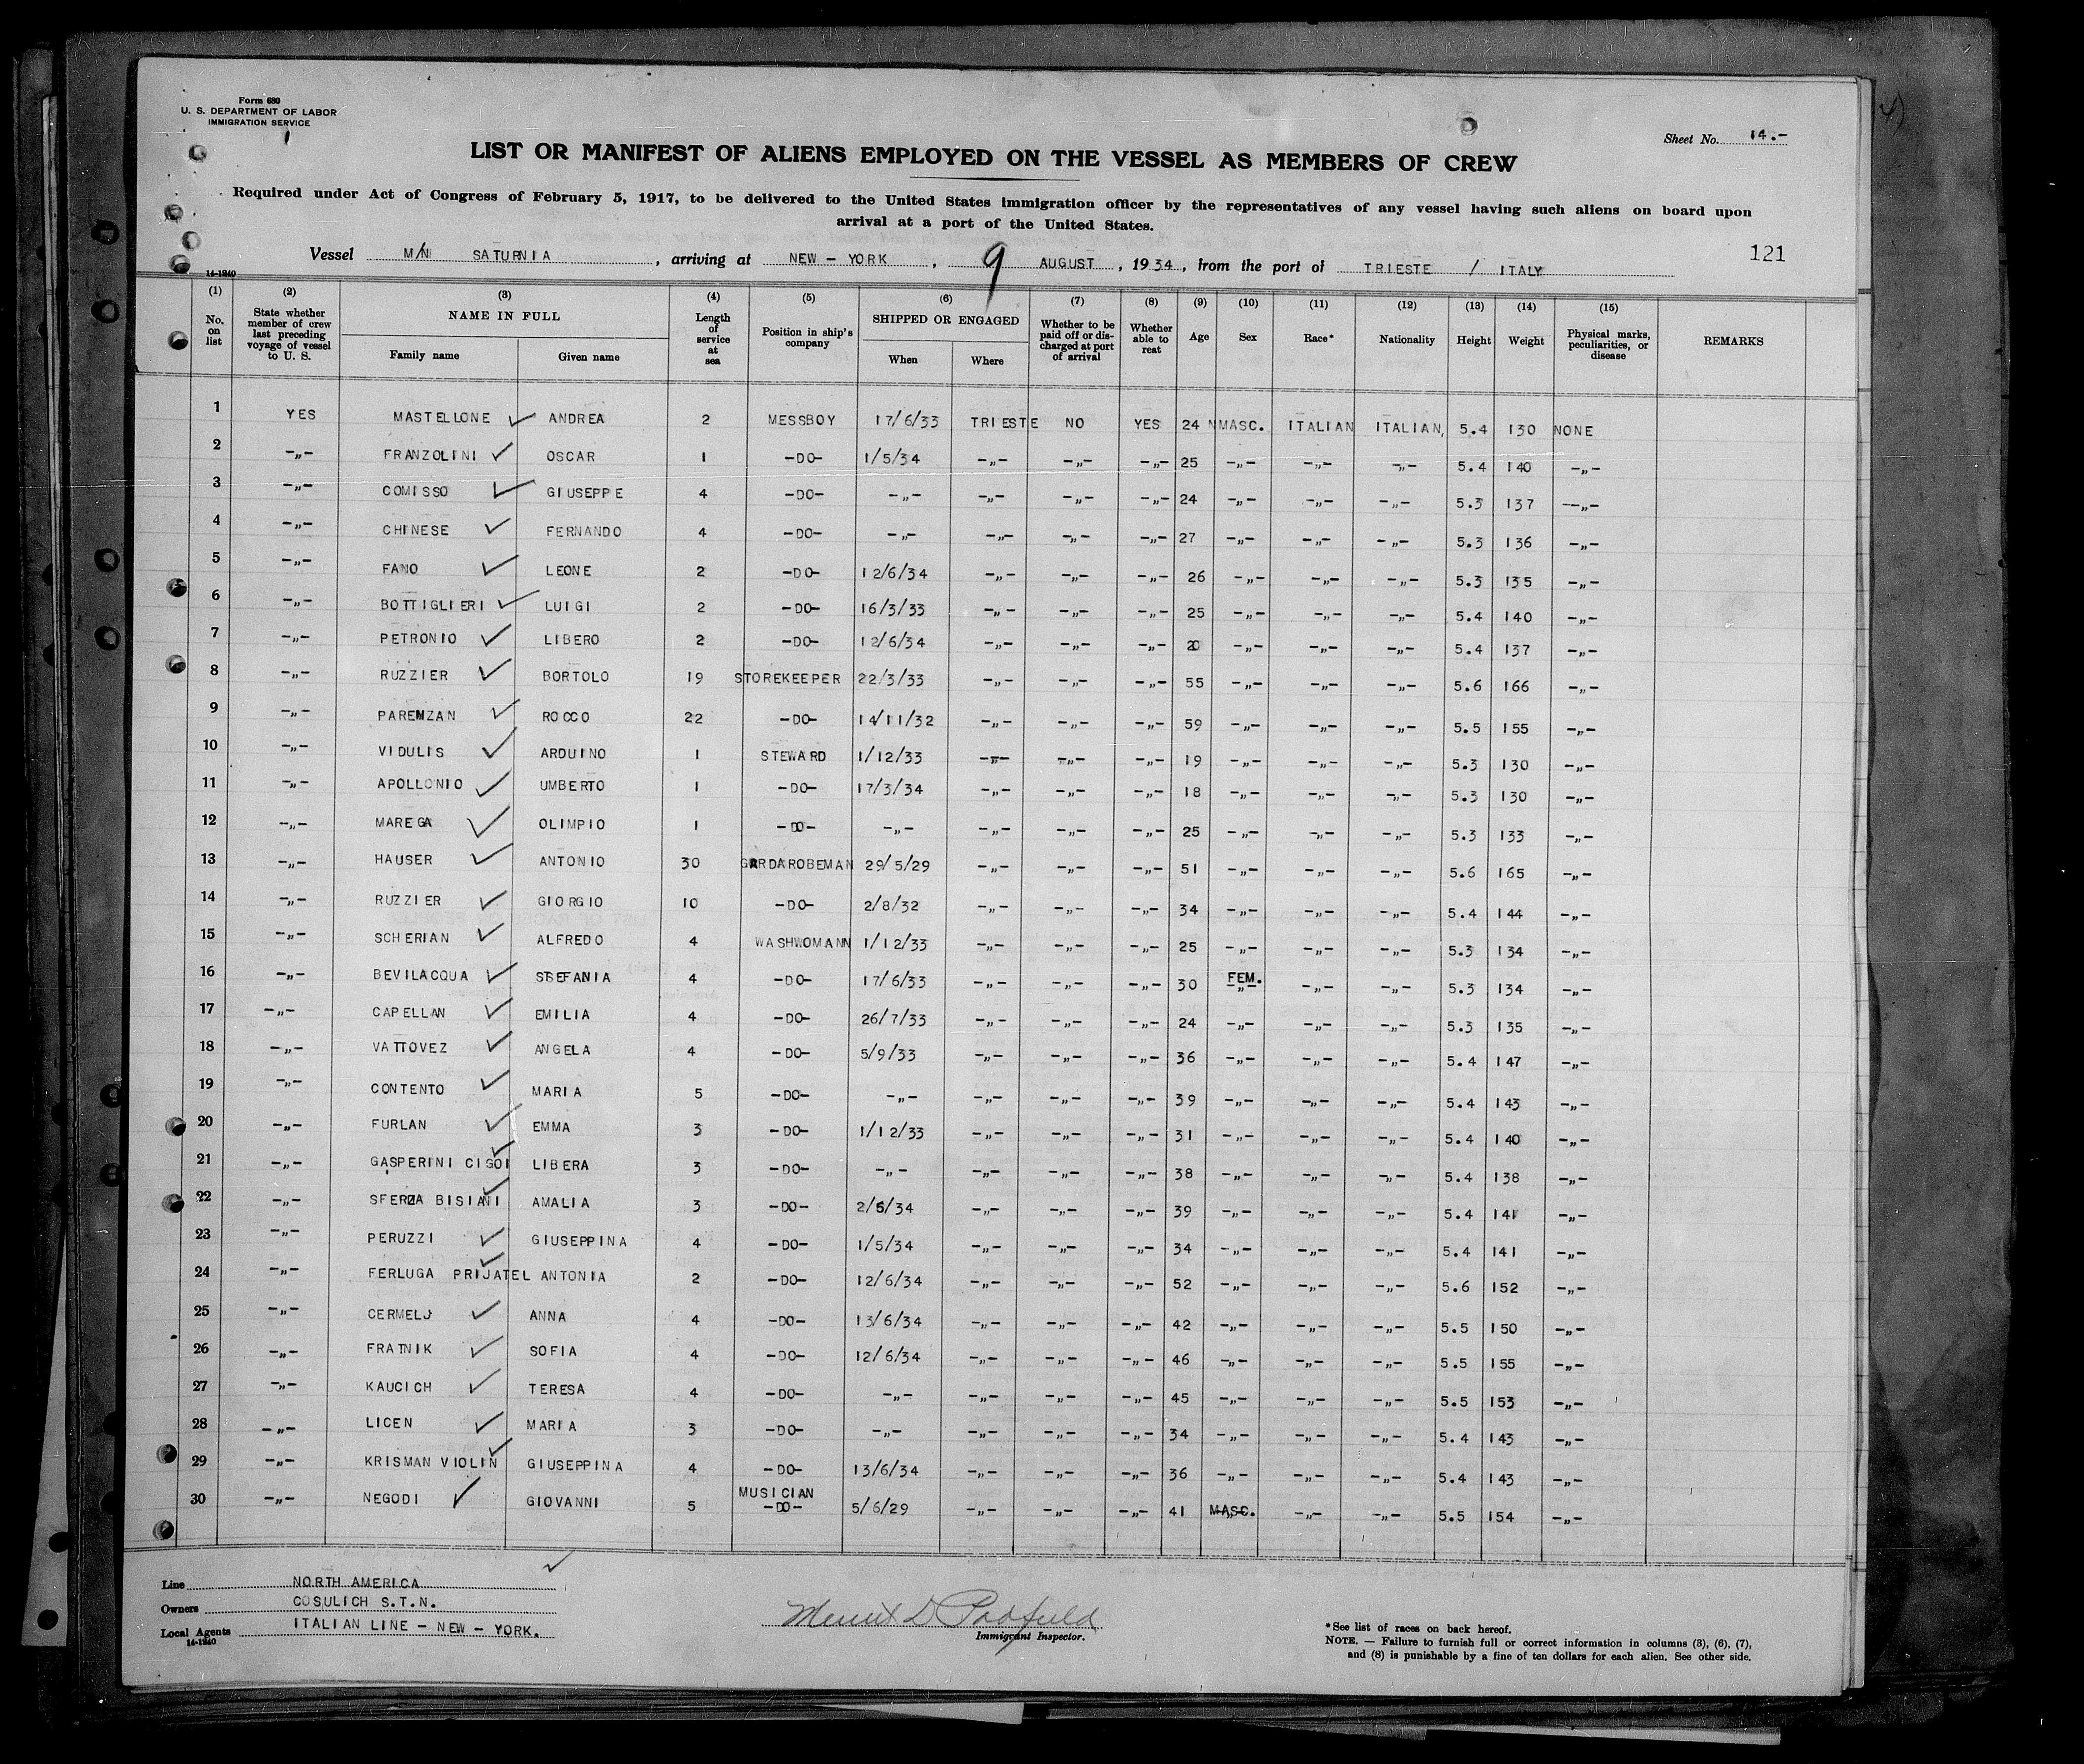 Form 680
U. S. DEPARTMENT OF LABOR
IMMIGRATION SERVICE
Sheet No. 14.-
LIST OR MANIFEST OF ALIENS EMPLOYED ON THE VESSEL AS MEMBERS OF CREW
Required under Act of Congress of February 5, 1917, to be delivered to the United States immigration officer by the representatives of any vessel having such aliens on board upon
arrival at a port of the United States.
Vessel M/N SATURNIA, arriving at NEW - YORK, 9 AUGUST, 1934, from the port of TRIESTE / ITALY
121
14-1240
(1) No. on list (2) State whether member of crew last preceding voyage of vessel to U. S. (3) NAME IN FULL Family name Given name (4) Length of service at sea (5) Position in ship's company (6) SHIPPED OR ENGAGED When Where (7) Whether to be paid off or discharged at port of arrival (8) Whether able to reat (9) Age (10) Sex (11) Race* (12) Nationality (13) Height (14) Weight (15) Physical marks, peculiarities, or disease REMARKS
1 YES MASTELLONE ANDREA 2 MESSBOY 17/6/33 TRIESTE NO YES 24 MASC. ITALIAN ITALIAN, 5.4 130 NONE
2 -„- FRANZOLINI OSCAR 1 -DO- 1/5/34 -„- -„- -„- 25 -„- -„- -„- 5.4 140 -„-
3 -„- COMISSO GIUSEPPE 4 -DO- -„- -„- -„- -„- 24 -„- -„- -„- 5.3 137 -„-
4 -„- CHINESE FERNANDO 4 -DO- -„- -„- -„- -„- 27 -„- -„- -„- 5.3 136 -„-
5 -„- FANO LEONE 2 -DO- 12/6/34 -„- -„- -„- 26 -„- -„- -„- 5.3 135 -„-
6 -„- BOTTIGLIERI LUIGI 2 -DO- 16/3/33 -„- -„- -„- 25 -„- -„- -„- 5.4 140 -„-
7 -„- PETRONIO LIBERO 2 -DO- 12/6/34 -„- -„- -„- 20 -„- -„- -„- 5.4 137 -„-
8 -„- RUZZIER BORTOLO 19 STOREKEEPER 22/3/33 -„- -„- -„- 55 -„- -„- -„- 5.6 166 -„-
9 -„- PARENZAN ROCCO 22 -DO- 14/11/32 -„- -„- -„- 59 -„- -„- -„- 5.5 155 -„-
10 -„- VIDULIS ARDUINO 1 STEWARD 1/12/33 -„- -„- -„- 19 -„- -„- -„- 5.3 130 -„-
11 -„- APOLLONIO UMBERTO 1 -DO- 17/3/34 -„- -„- -„- 18 -„- -„- -„- 5.3 130 -„-
12 -„- MAREGA OLIMPIO 1 -DO- -„- -„- -„- -„- 25 -„- -„- -„- 5.3 133 -„-
13 -„- HAUSER ANTONIO 30 GARDAROBEMAN 29/5/29 -„- -„- -„- 51 -„- -„- -„- 5.6 165 -„-
14 -„- RUZZIER GIORGIO 10 -DO- 2/8/32 -„- -„- -„- 34 -„- -„- -„- 5.4 144 -„-
15 -„- SCHERIAN ALFREDO 4 WASHWOMANN 1/12/33 -„- -„- -„- 25 -„- -„- -„- 5.3 134 -„-
16 -„- BEVILACQUA STEFANIA 4 -DO- 17/6/33 -„- -„- -„- 30 FEM. -„- -„- -„- 5.3 134 -„-
17 -„- CAPELLAN EMILIA 4 -DO- 26/7/33 -„- -„- -„- 24 -„- -„- -„- 5.3 135 -„-
18 -„- VATTOVEZ ANGELA 4 -DO- 5/9/33 -„- -„- -„- 36 -„- -„- -„- 5.4 147 -„-
19 -„- CONTENTO MARIA 5 -DO- -„- -„- -„- -„- 39 -„- -„- -„- 5.4 143 -„-
20 -„- FURLAN EMMA 3 -DO- 1/12/33 -„- -„- -„- 31 -„- -„- -„- 5.4 140 -„-
21 -„- GASPERINI CIGOI LIBERA 3 -DO- -„- -„- -„- -„- 38 -„- -„- -„- 5.4 138 -„-
22 -„- SFERZA BISIANI AMALIA 3 -DO- 2/5/34 -„- -„- -„- 39 -„- -„- -„- 5.4 141 -„-
23 -„- PERUZZI GIUSEPPINA 4 -DO- 1/5/34 -„- -„- -„- 34 -„- -„- -„- 5.4 141 -„-
24 -„- FERLUGA PRIJATEL ANTONIA 2 -DO- 12/6/34 -„- -„- -„- 52 -„- -„- -„- 5.6 152 -„-
25 -„- CERMELJ ANNA 4 -DO- 13/6/34 -„- -„- -„- 42 -„- -„- -„- 5.5 150 -„-
26 -„- FRATNIK SOFIA 4 -DO- 12/6/34 -„- -„- -„- 46 -„- -„- -„- 5.5 155 -„-
27 -„- KAUCICH TERESA 4 -DO- -„- -„- -„- -„- 45 -„- -„- -„- 5.5 153 -„-
28 -„- LICEN MARIA 3 -DO- -„- -„- -„- -„- 34 -„- -„- -„- 5.4 143 -„-
29 -„- KRISMAN VIOLIN GIUSEPPINA 4 -DO- 13/6/34 -„- -„- -„- 36 -„- -„- -„- 5.4 143 -„-
30 -„- NEGODI GIOVANNI 5 MUSICIAN -DO- 5/6/29 -„- -„- -„- 41 MASC. -„- -„- 5.5 154 -„-
Line NORTH AMERICA
Owners COSULICH S.T.N.
Local Agents ITALIAN LINE - NEW - YORK.
14-1240
Merrit D Padfield
Immigrant Inspector.
*See list of races on back hereof.
NOTE. — Failure to furnish full or correct information in columns (3), (6), (7),
and (8) is punishable by a fine of ten dollars for each alien. See other side.